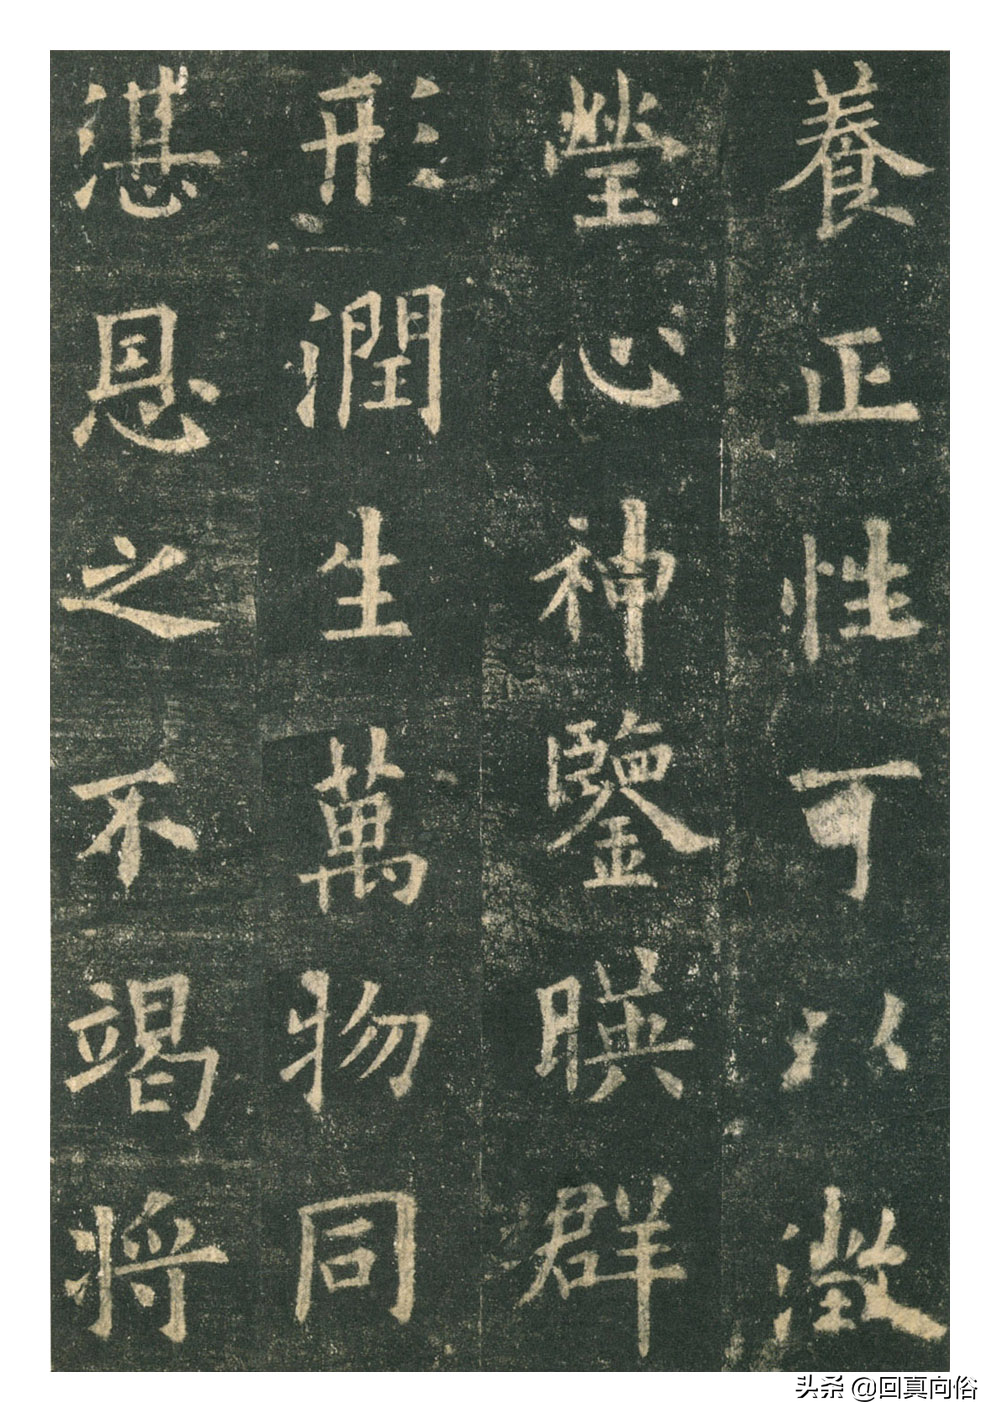 養正性可以澂
瑩心神鑒暎群
形潤生萬物同
湛恩之不竭將
头条 @回真向俗